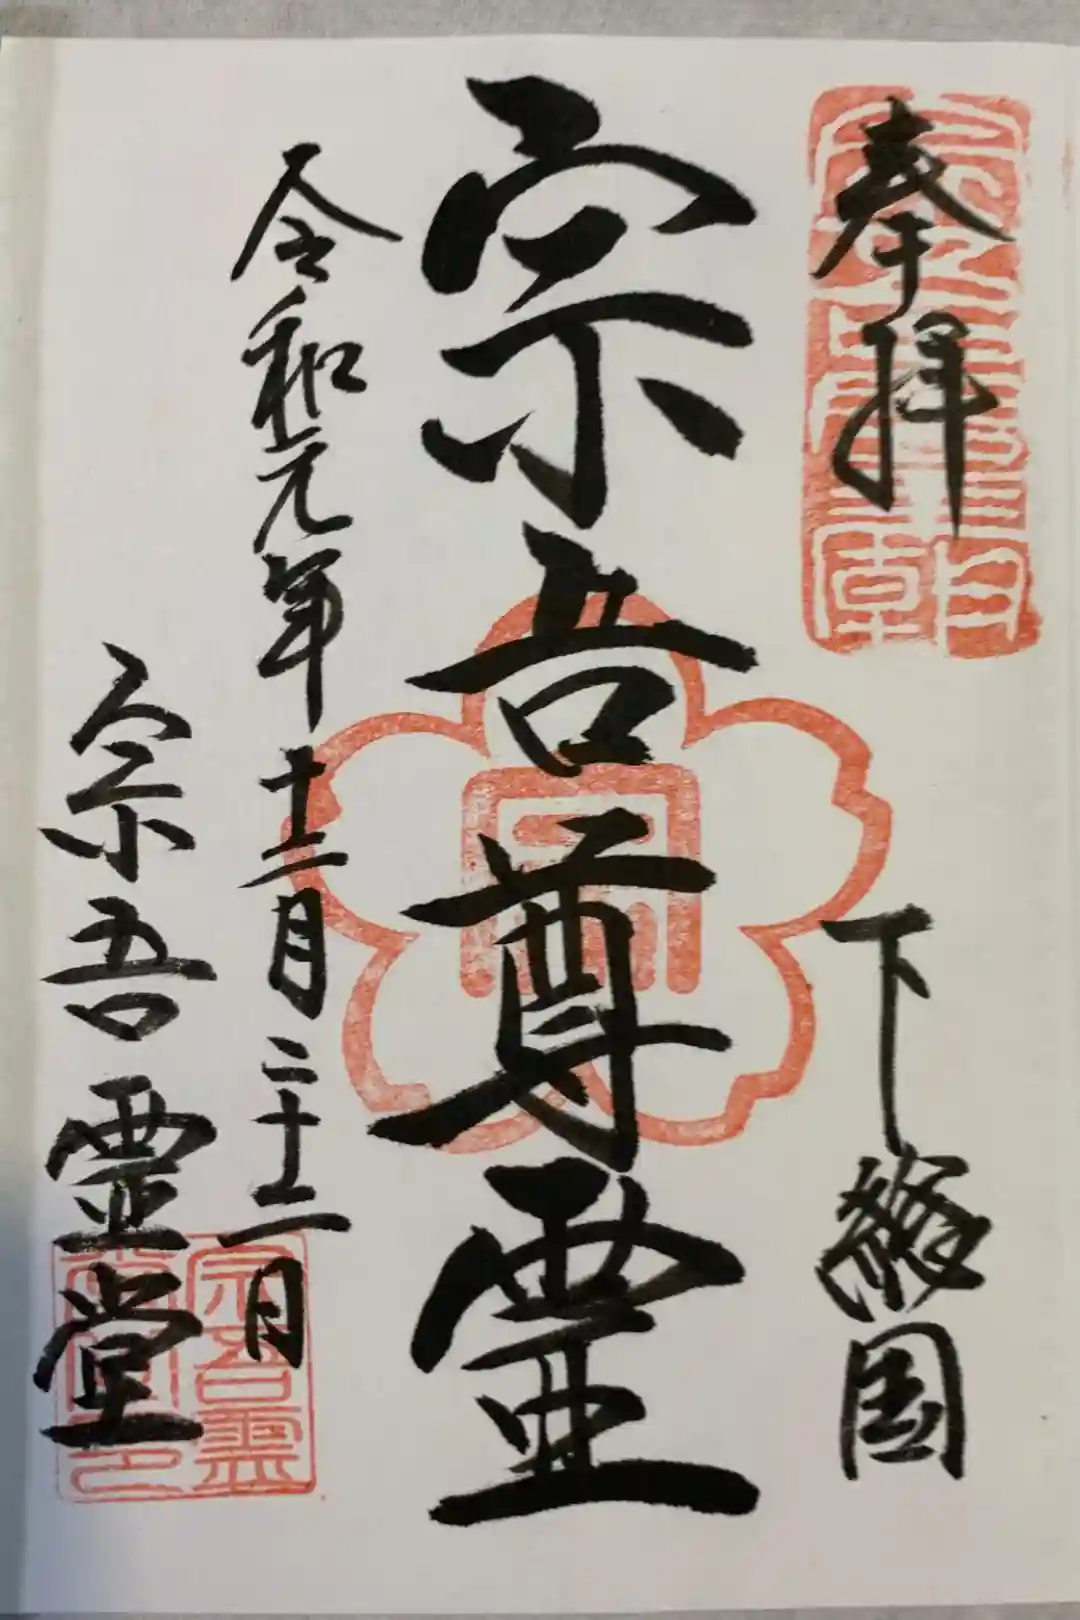 奉拝
下総国
宗吾尊霊
令和元年十二月二十二日
宗吾霊堂
宗吾霊